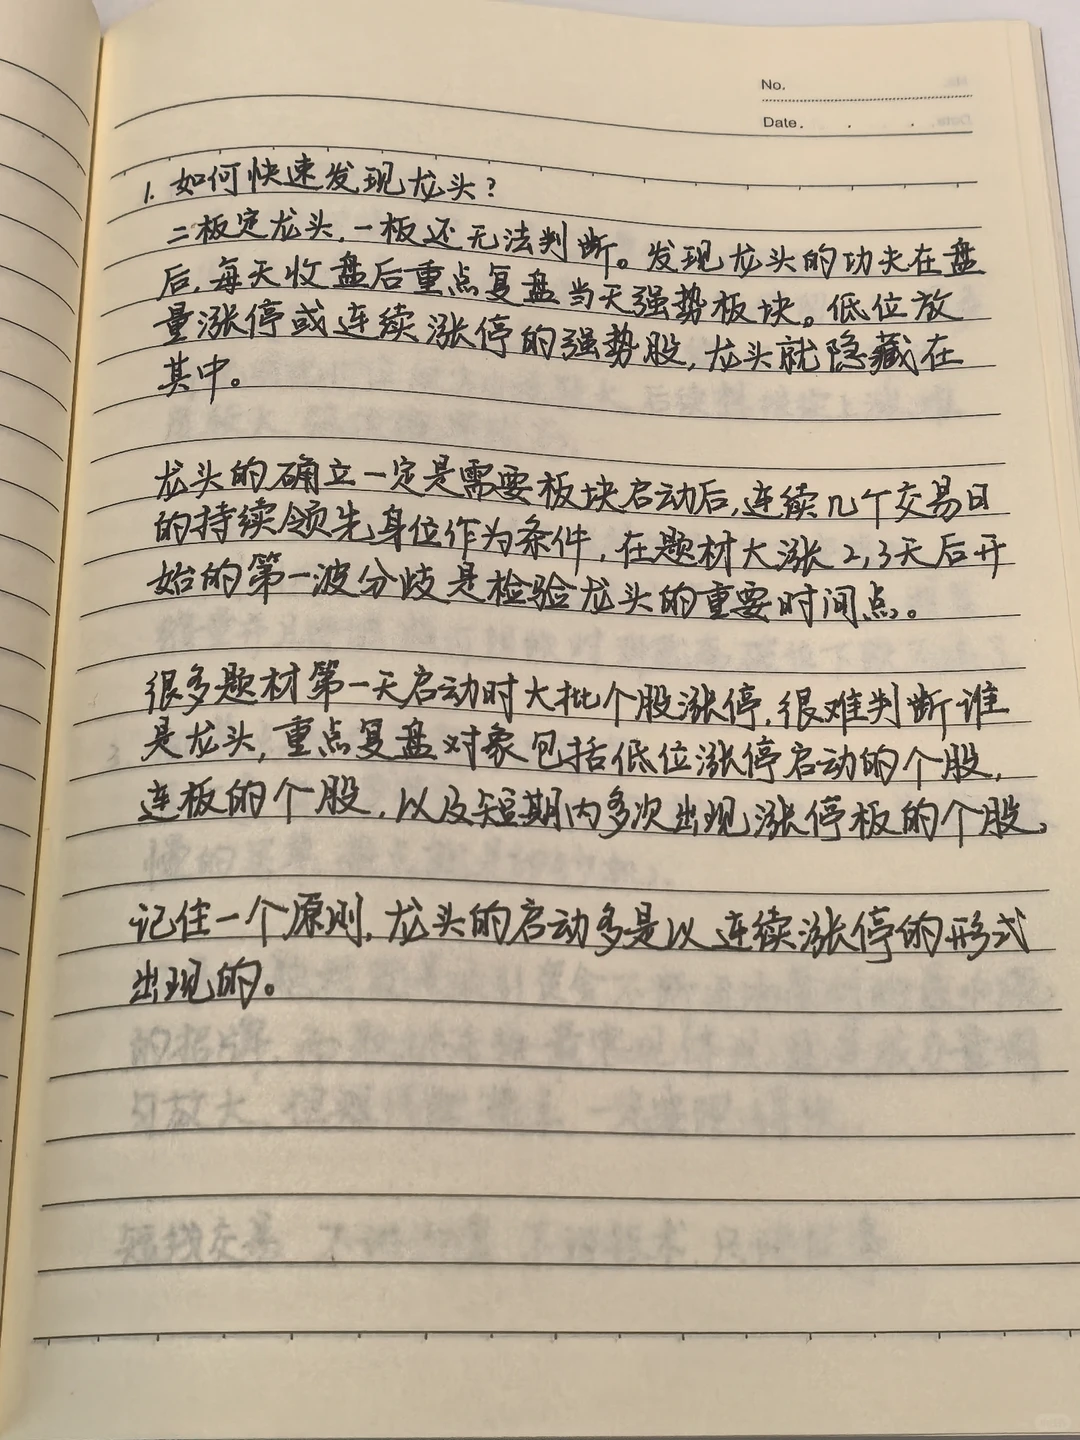 No.
Date. . .
1. 如何快速发现龙头?
二板定龙头,一板还无法判断。发现龙头的功夫在盘
后,每天收盘后重点复盘当天强势板块。低位放
量涨停或连续涨停的强势股,龙头就隐藏在
其中。
龙头的确立一定是需要板块启动后,连续几个交易日
的持续领先身位作为条件,在题材大涨2,3天后开
始的第一波分歧是检验龙头的重要时间点。
很多题材第一天启动时大批个股涨停,很难判断谁
是龙头,重点复盘对象包括低位涨停启动的个股,
连板的个股,以及短期内多次出现涨停板的个股,
记住一个原则,龙头的启动多是以连续涨停的形式
出现的。